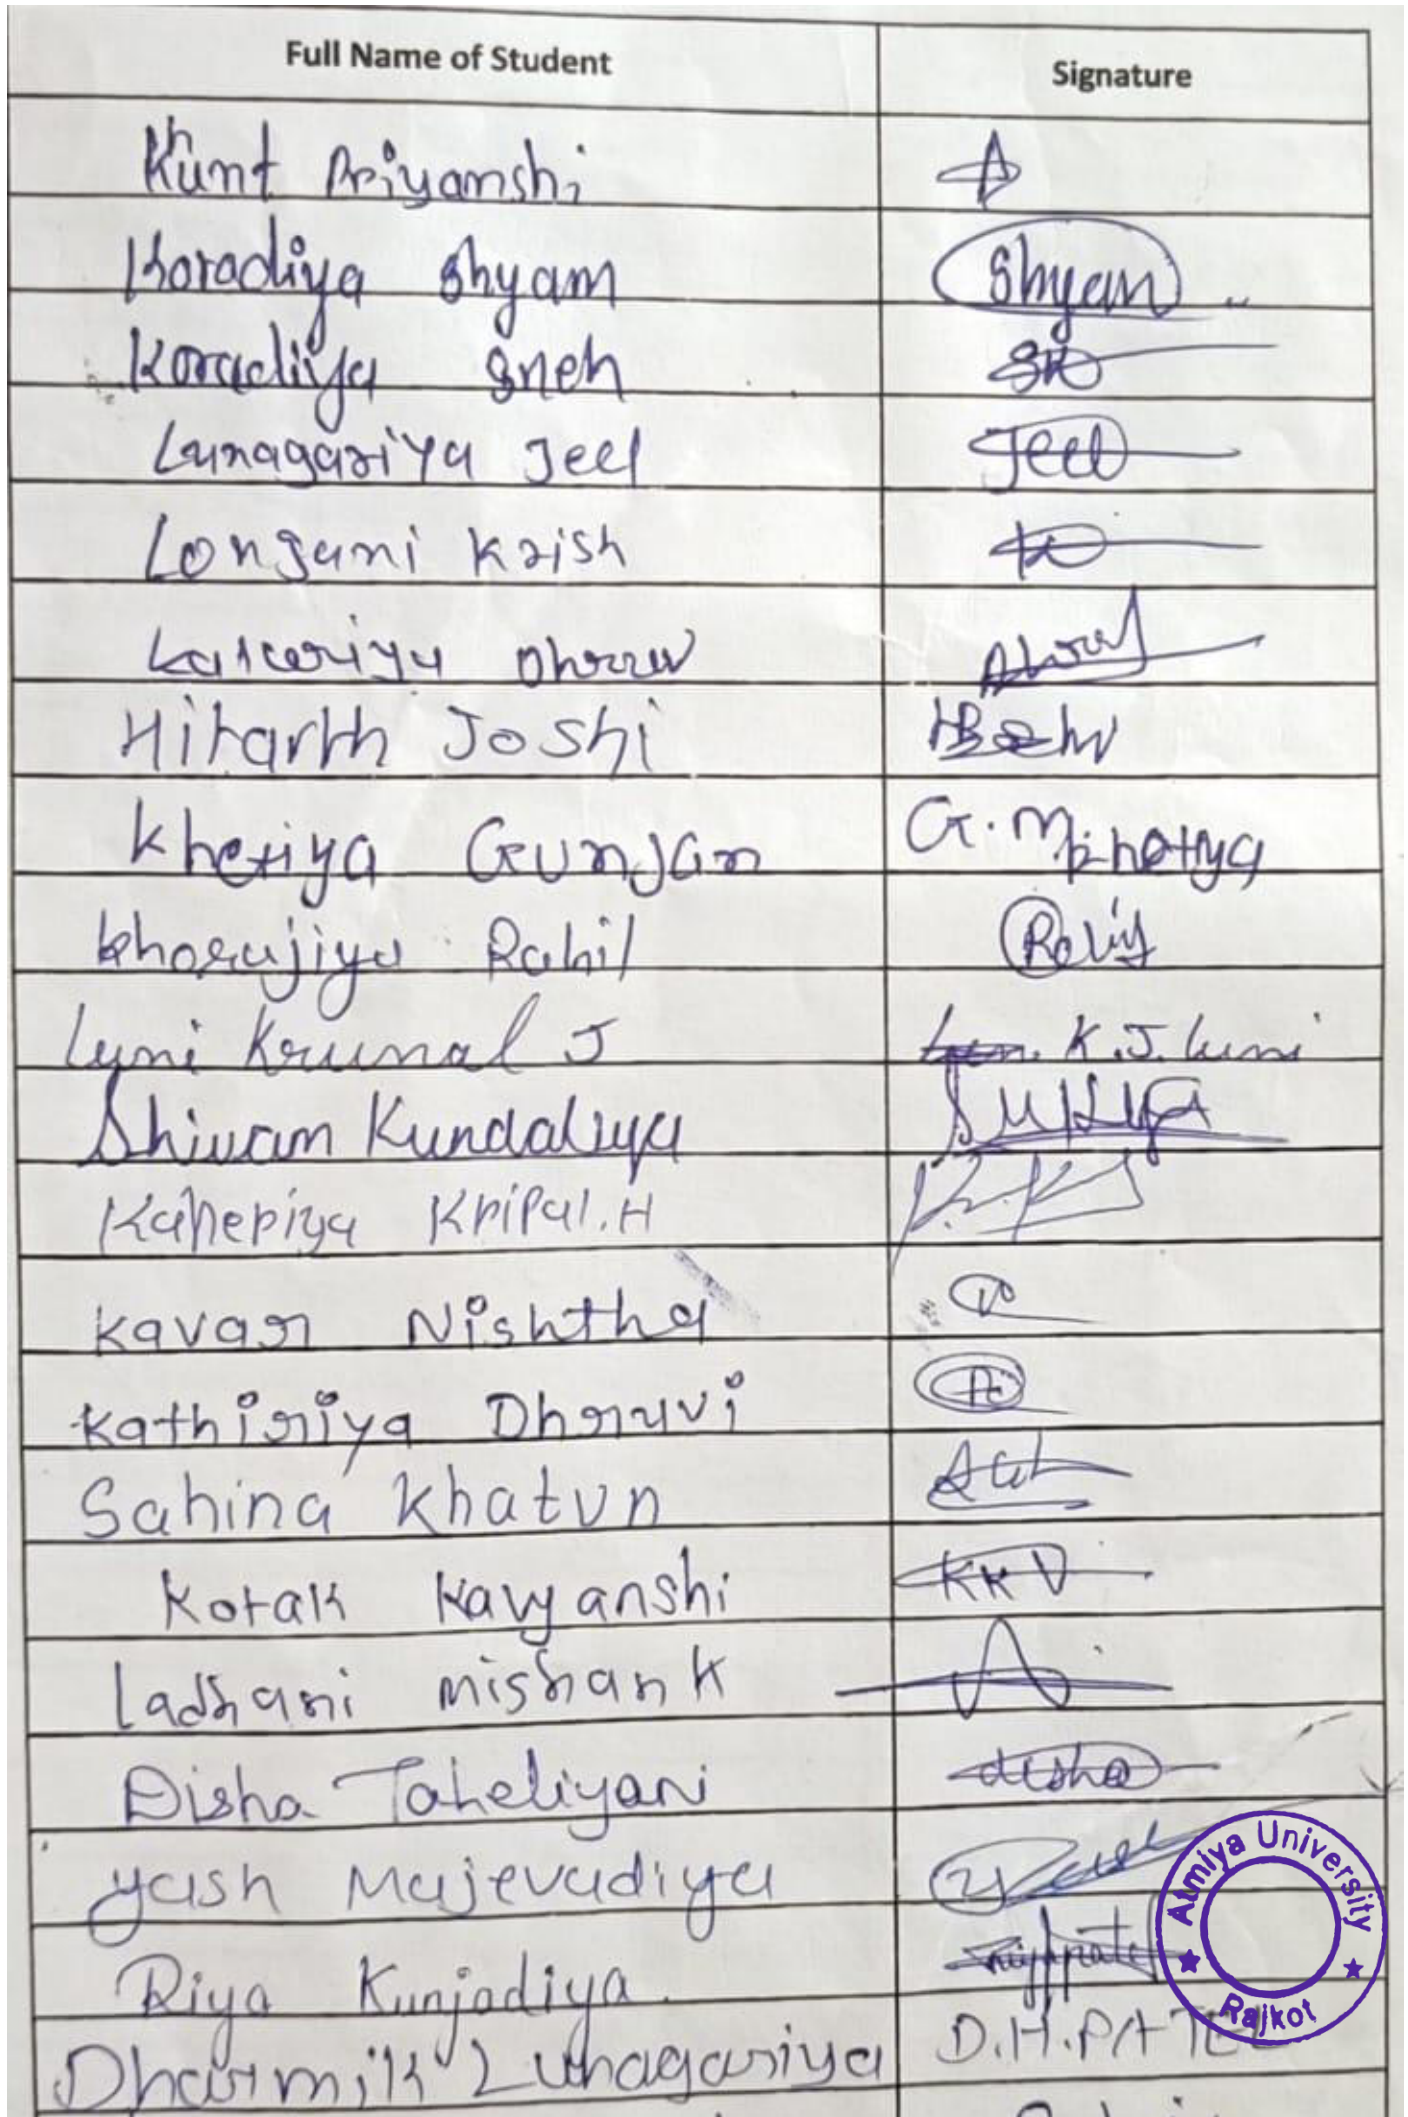 Full Name of Student Signature
Kunt Priyanshi
Koradiya Shyam Shyam
Koradiya Sneh SK
Lunagariya Jeel Jeel
Longani Krish
Kalariya Dhruv Dhruv
Hitarth Joshi
Kheriya Gunjan G.M.
Khorajiya Rahil Rahil
Luni Krunal J K.J. Luni
Shivam Kundaliya
Kaneriya Kripal.H
Kavar Nishtha
Kathiriya Dhruvi
Sahina Khatun
Kotak Kavyanshi KKV
Ladhani Mishank
Disha Taheliyani disha
Yash Majevadiya Yash
Riya Kunjadiya
Dharmik Lunagariya D.H.PATEL
Atmiya University
Rajkot